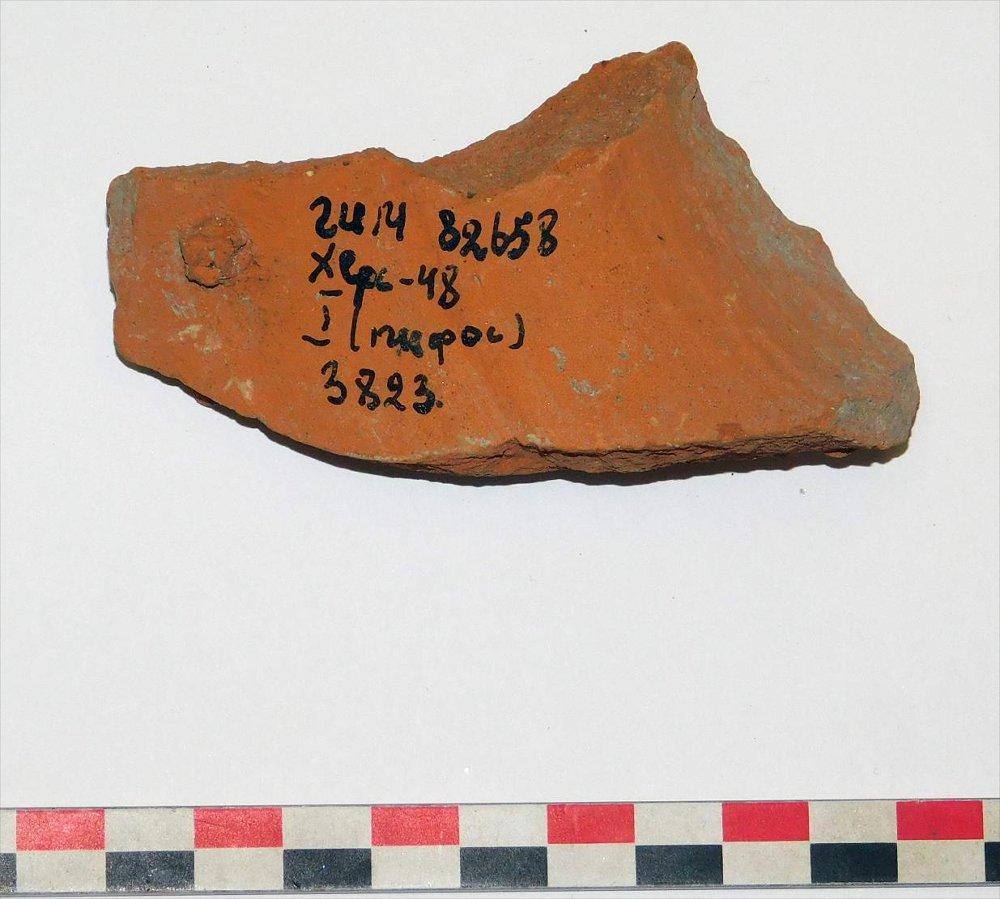 ГИМ 82658
Херс-48
I (пифос)
3823.